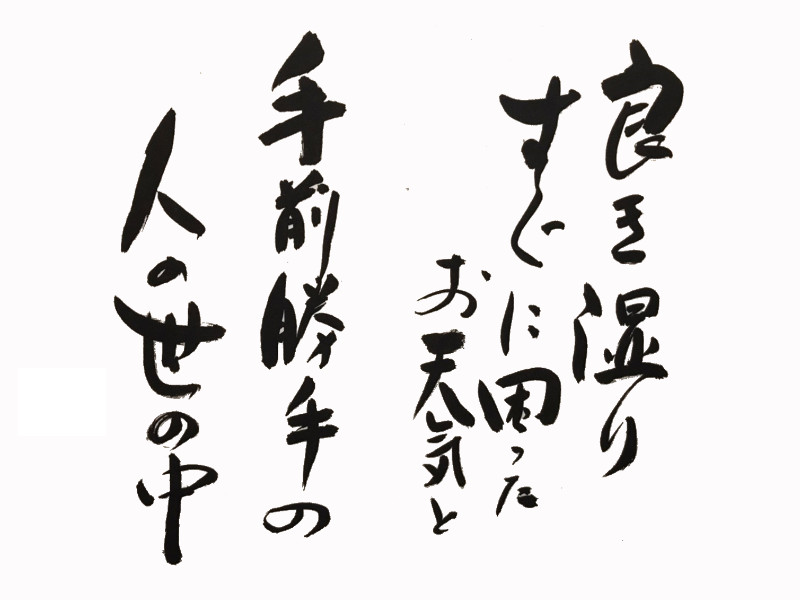 良き湿り
すぐに困った
お天気と
手前勝手の
人の世の中